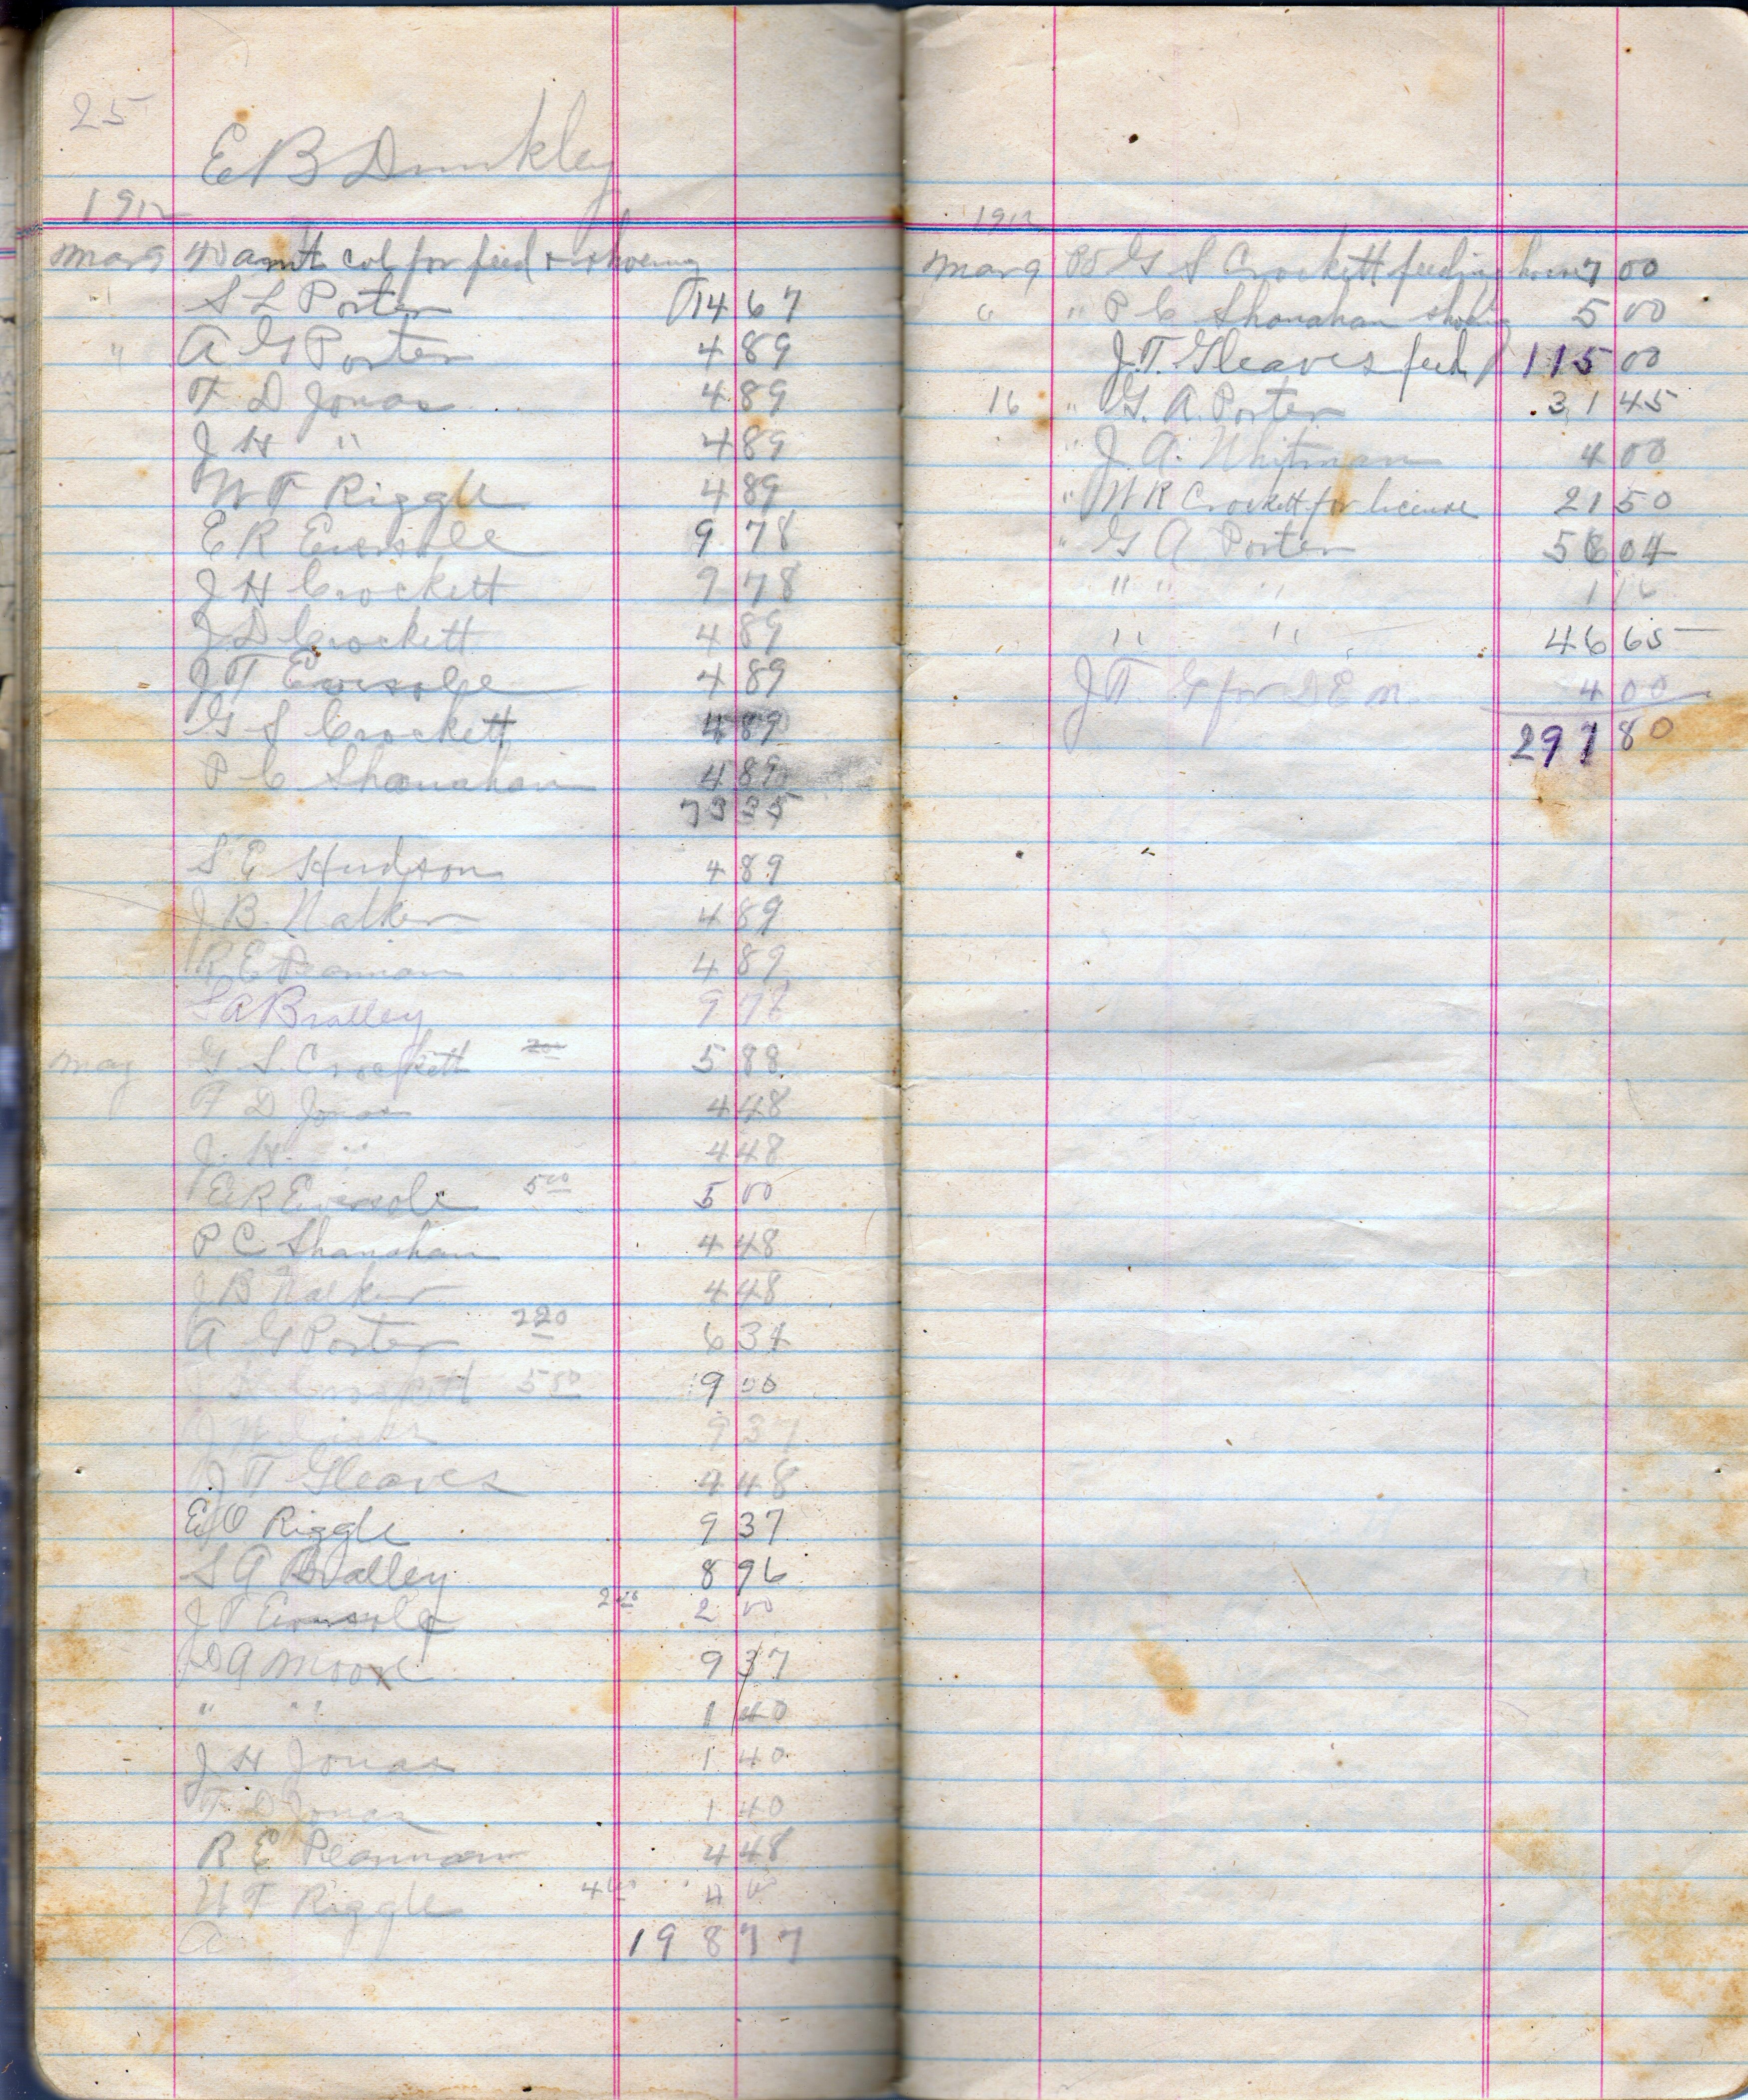 25
E B Dunkley
1912
Mar 9 To amt col for feed + shoeing
" S L Porter 14 67
" A G Porter 4 89
F D Jonas 4 89
J H " 4 89
W T Riggle 4 89
E R Eversole 9 78
J H Crockett 9 78
J D Crockett 4 89
J T Eversole 4 89
G S Crockett 4 89
P C Shanahan 4 89
73 35
S E Hudson 4 89
J B Walker 4 89
R E Pearman 4 89
S A Bralley 9 78
May G S Crockett 5 88
F D Jonas 4 48
J. H. " 4 48
E R Eversole 5 00 5 00
P C Shanahan 4 48
J B Walker 4 48
A G Porter 2 20 6 34
J H Crockett 5 00 9 00
J W 9 37
J T Gleaves 4 48
E O Riggle 9 37
S A Bralley 8 96
J T Eversole 2 00 2 00
D A Moore 9 37
" " 1 40
J H Jonas 1 40
F D Jonas 1 40
R E Pearman 4 48
W T Riggle 4 00 4 00
A
198 77
1912
Mar 9 Pd G S Crockett feeding horse 7 00
" " P C Shanahan shoeing 5 00
J. T. Gleaves feed 115 00
16 " G. A. Porter 31 45
" J. A. Whitman 4 00
" W R Crockett for license 21 50
" G A Porter 56 04
" " " 1 16
" " 46 65
J T. G for D E M. 4 00
297 80